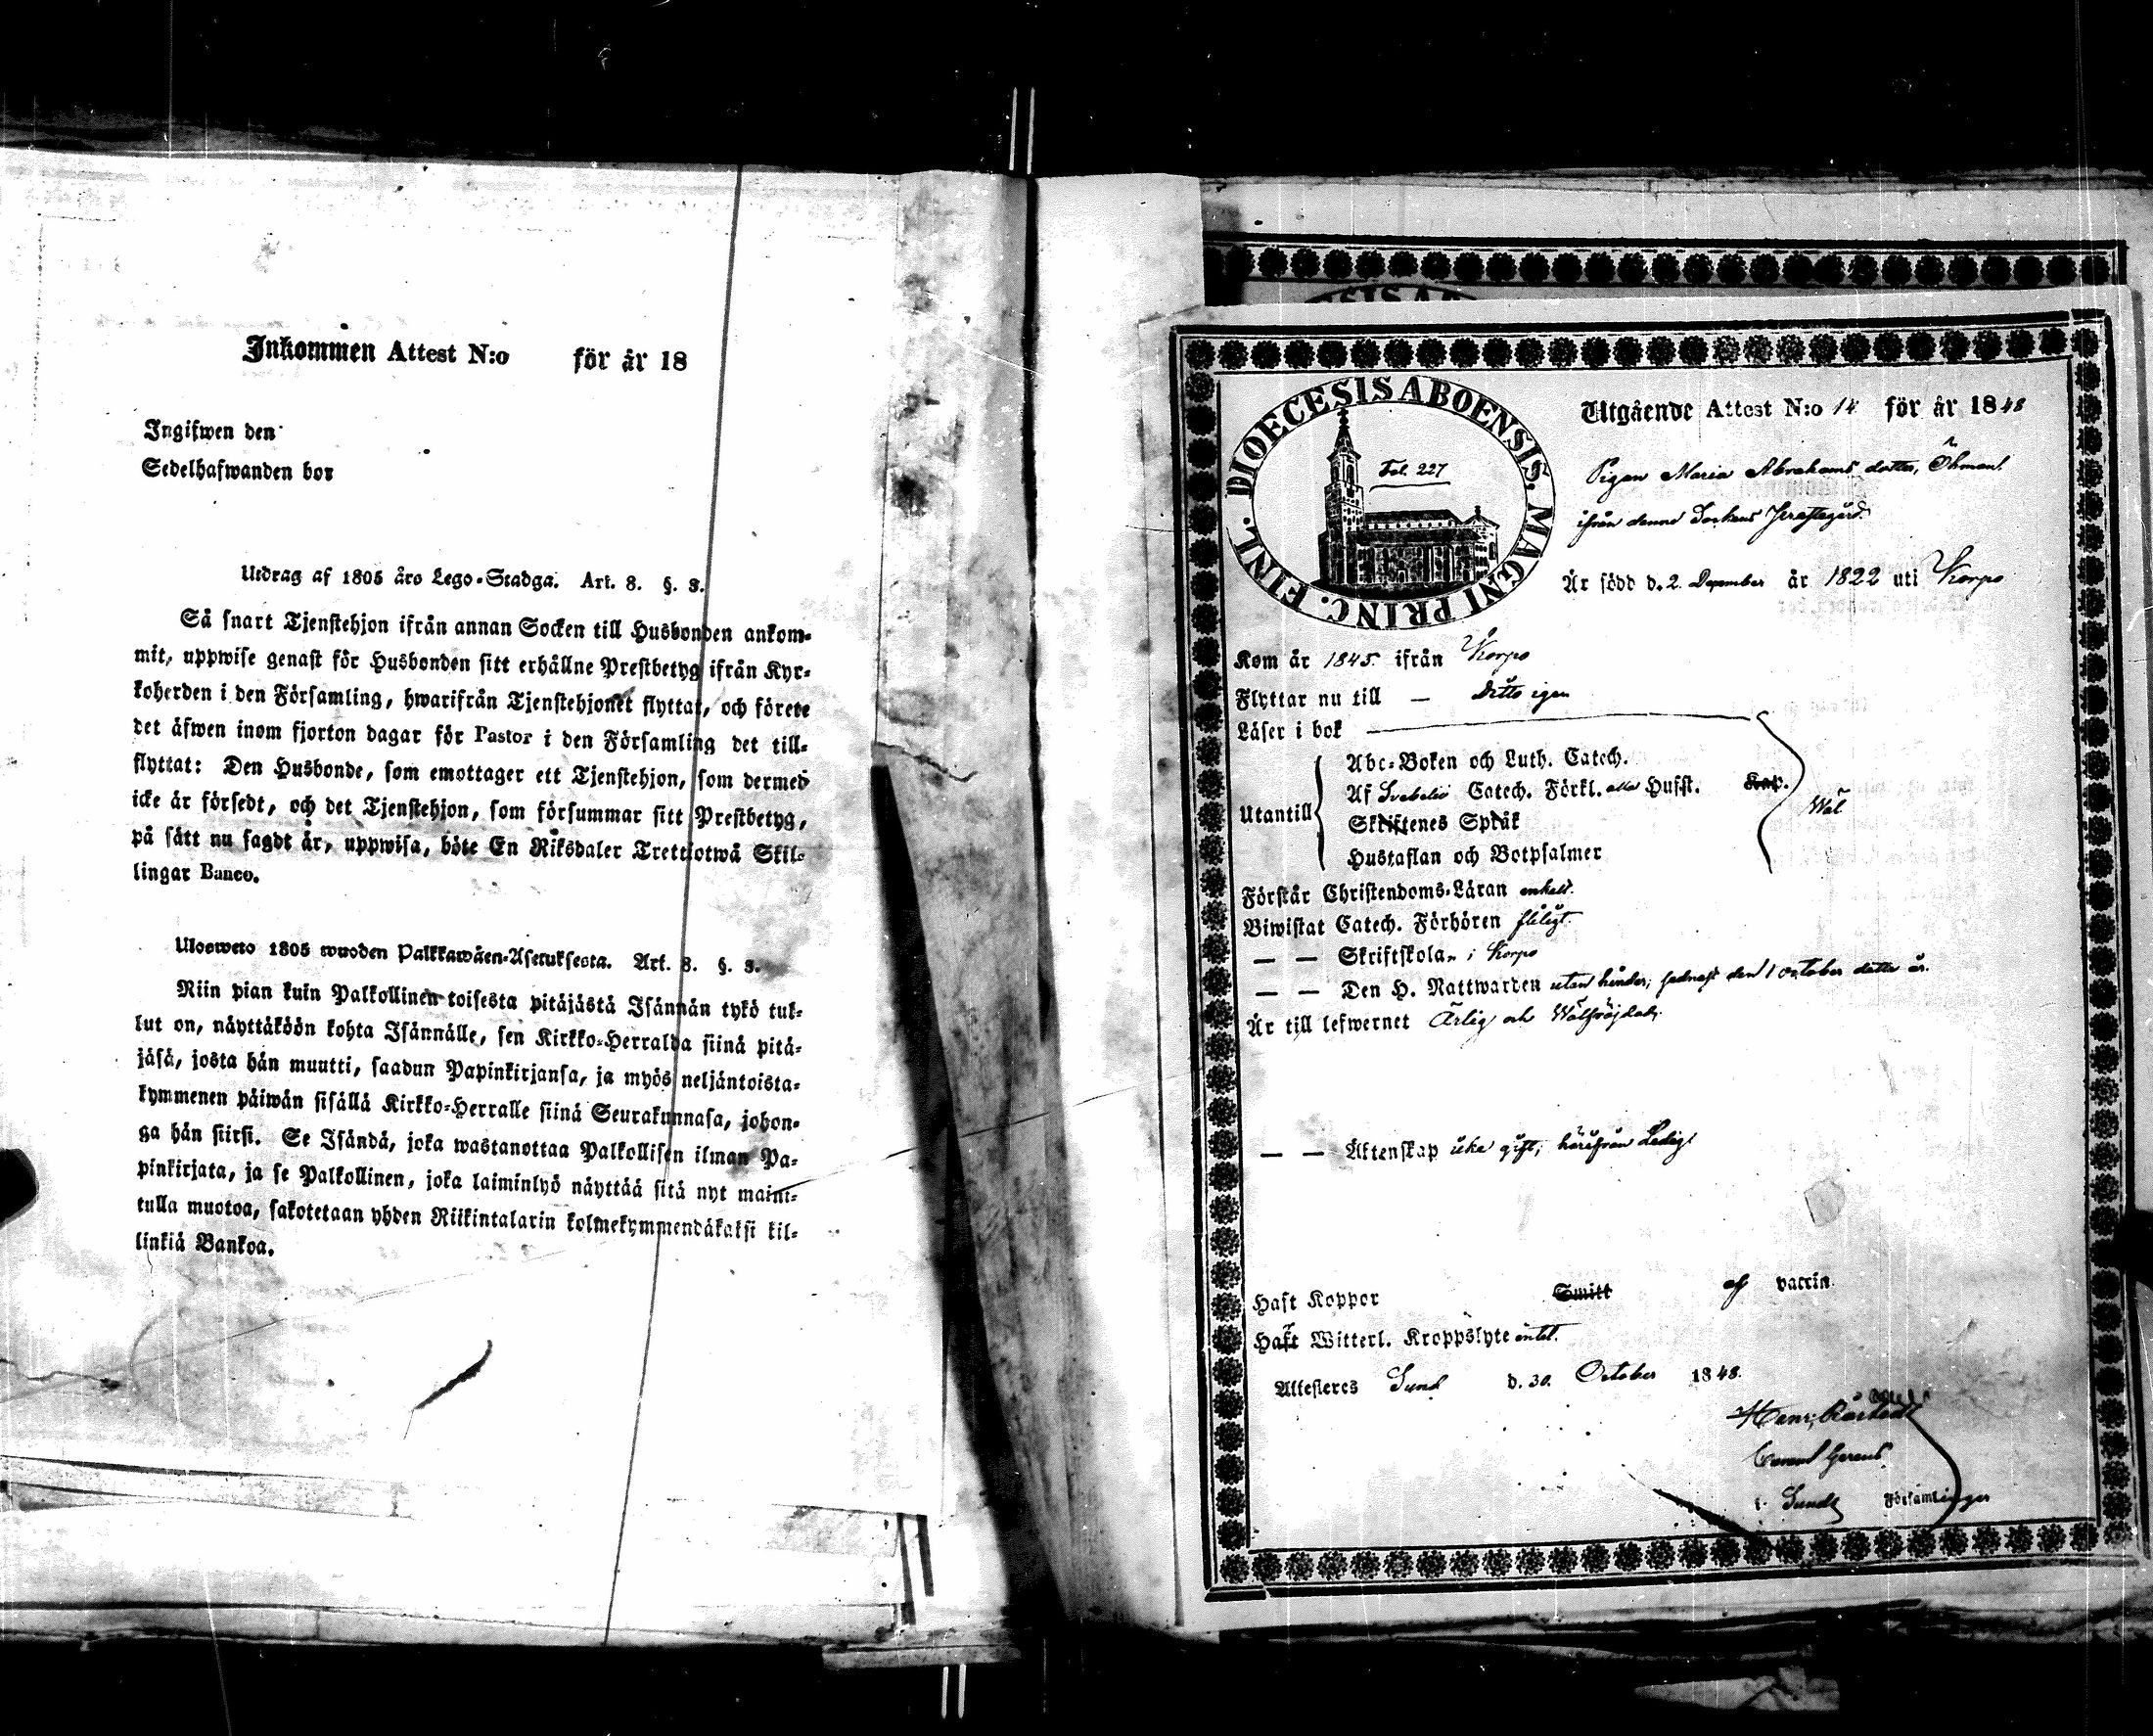 Inkommen Attest N:o för år 18
Ingifwen den
Sedelhafwanden bor
Utdrag af 1805 års Lego-Stadga. Art. 8. §. 3.
Så snart Tjenstehjon ifrån annan Socken till Husbonden ankom-
mit, uppwise genast för Husbonden sitt erhållne Prestbetyg ifrån Kyr-
koherden i den Församling, hwarifrån Tjenstehjonet flyttat, och förete
det äfwen inom fjorton dagar för Pastor i den Församling det till-
flyttat: Den Husbonde, som emottager ett Tjenstehjon, som dermed
icke är försedt, och det Tjenstehjon, som försummar sitt Prestbetyg,
på sätt nu sagdt är, uppwisa, böte En Riksdaler Trettiotwå Skil-
lingar Banco.
Ulosweto 1805 wuoden Palkkawäen-Asetuksesta. Art. 8. §. 3.
Niin pian kuin Palkollinen toisesta pitäjästä Isännän tykö tul-
lut on, näyttäköön kohta Isännälle, sen Kirkko-Herralda siinä pitä-
jäsä, josta hän muutti, saadun Papinkirjansa, ja myös neljäntoista-
kymmenen päiwän sisällä Kirkko-Herralle siinä Seurakunnasa, johon-
ga hän siirsi. Se Isändä, joka wastanottaa Palkollisen ilman Pa-
pinkirjata, ja se Palkollinen, joka laiminlyö näyttää sitä nyt maini-
tulla muotoa, sakotetaan yhden Riikintalarin kolmekymmendäkaksi kil-
linkiä Bankoa.
DIOECESIS ABOENSIS. MAGNI PRINC. FINL.
Fol. 227
Utgående Attest N:o 14 för år 1848
Pigan Maria Abrahams dotter, Öhman
ifrån denne Sockens Prestegård
Är född d. 2. December år 1822 uti Korpo
Kom år 1845. ifrån Korpo
Flyttar nu till — Ditto igen
Läser i bok
Utantill
Abc-Boken och Luth. Catech.
Af Svebelii Catech. Förkl. eller Husst. Kap.
Skriftenes Språk
Hustaflan och Botpsalmer
Wäl
Förstår Christendoms-Läran enkelt.
Biwistat Catech. Förhören flitigt.
— — Skriftskolan i Korpo
— — Den H. Nattwarden utan hinder, sednast den 1 october detta år.
Är till lefwernet Ärlig och Wälfrejdad.
— — Äktenskap icke gift; härifrån Ledig.
Haft Koppor Smitt af vaccin
Haft Witterl. Kroppslyte intet.
Attesteres Sund d. 30. October 1848.
i Sunds Församlingar